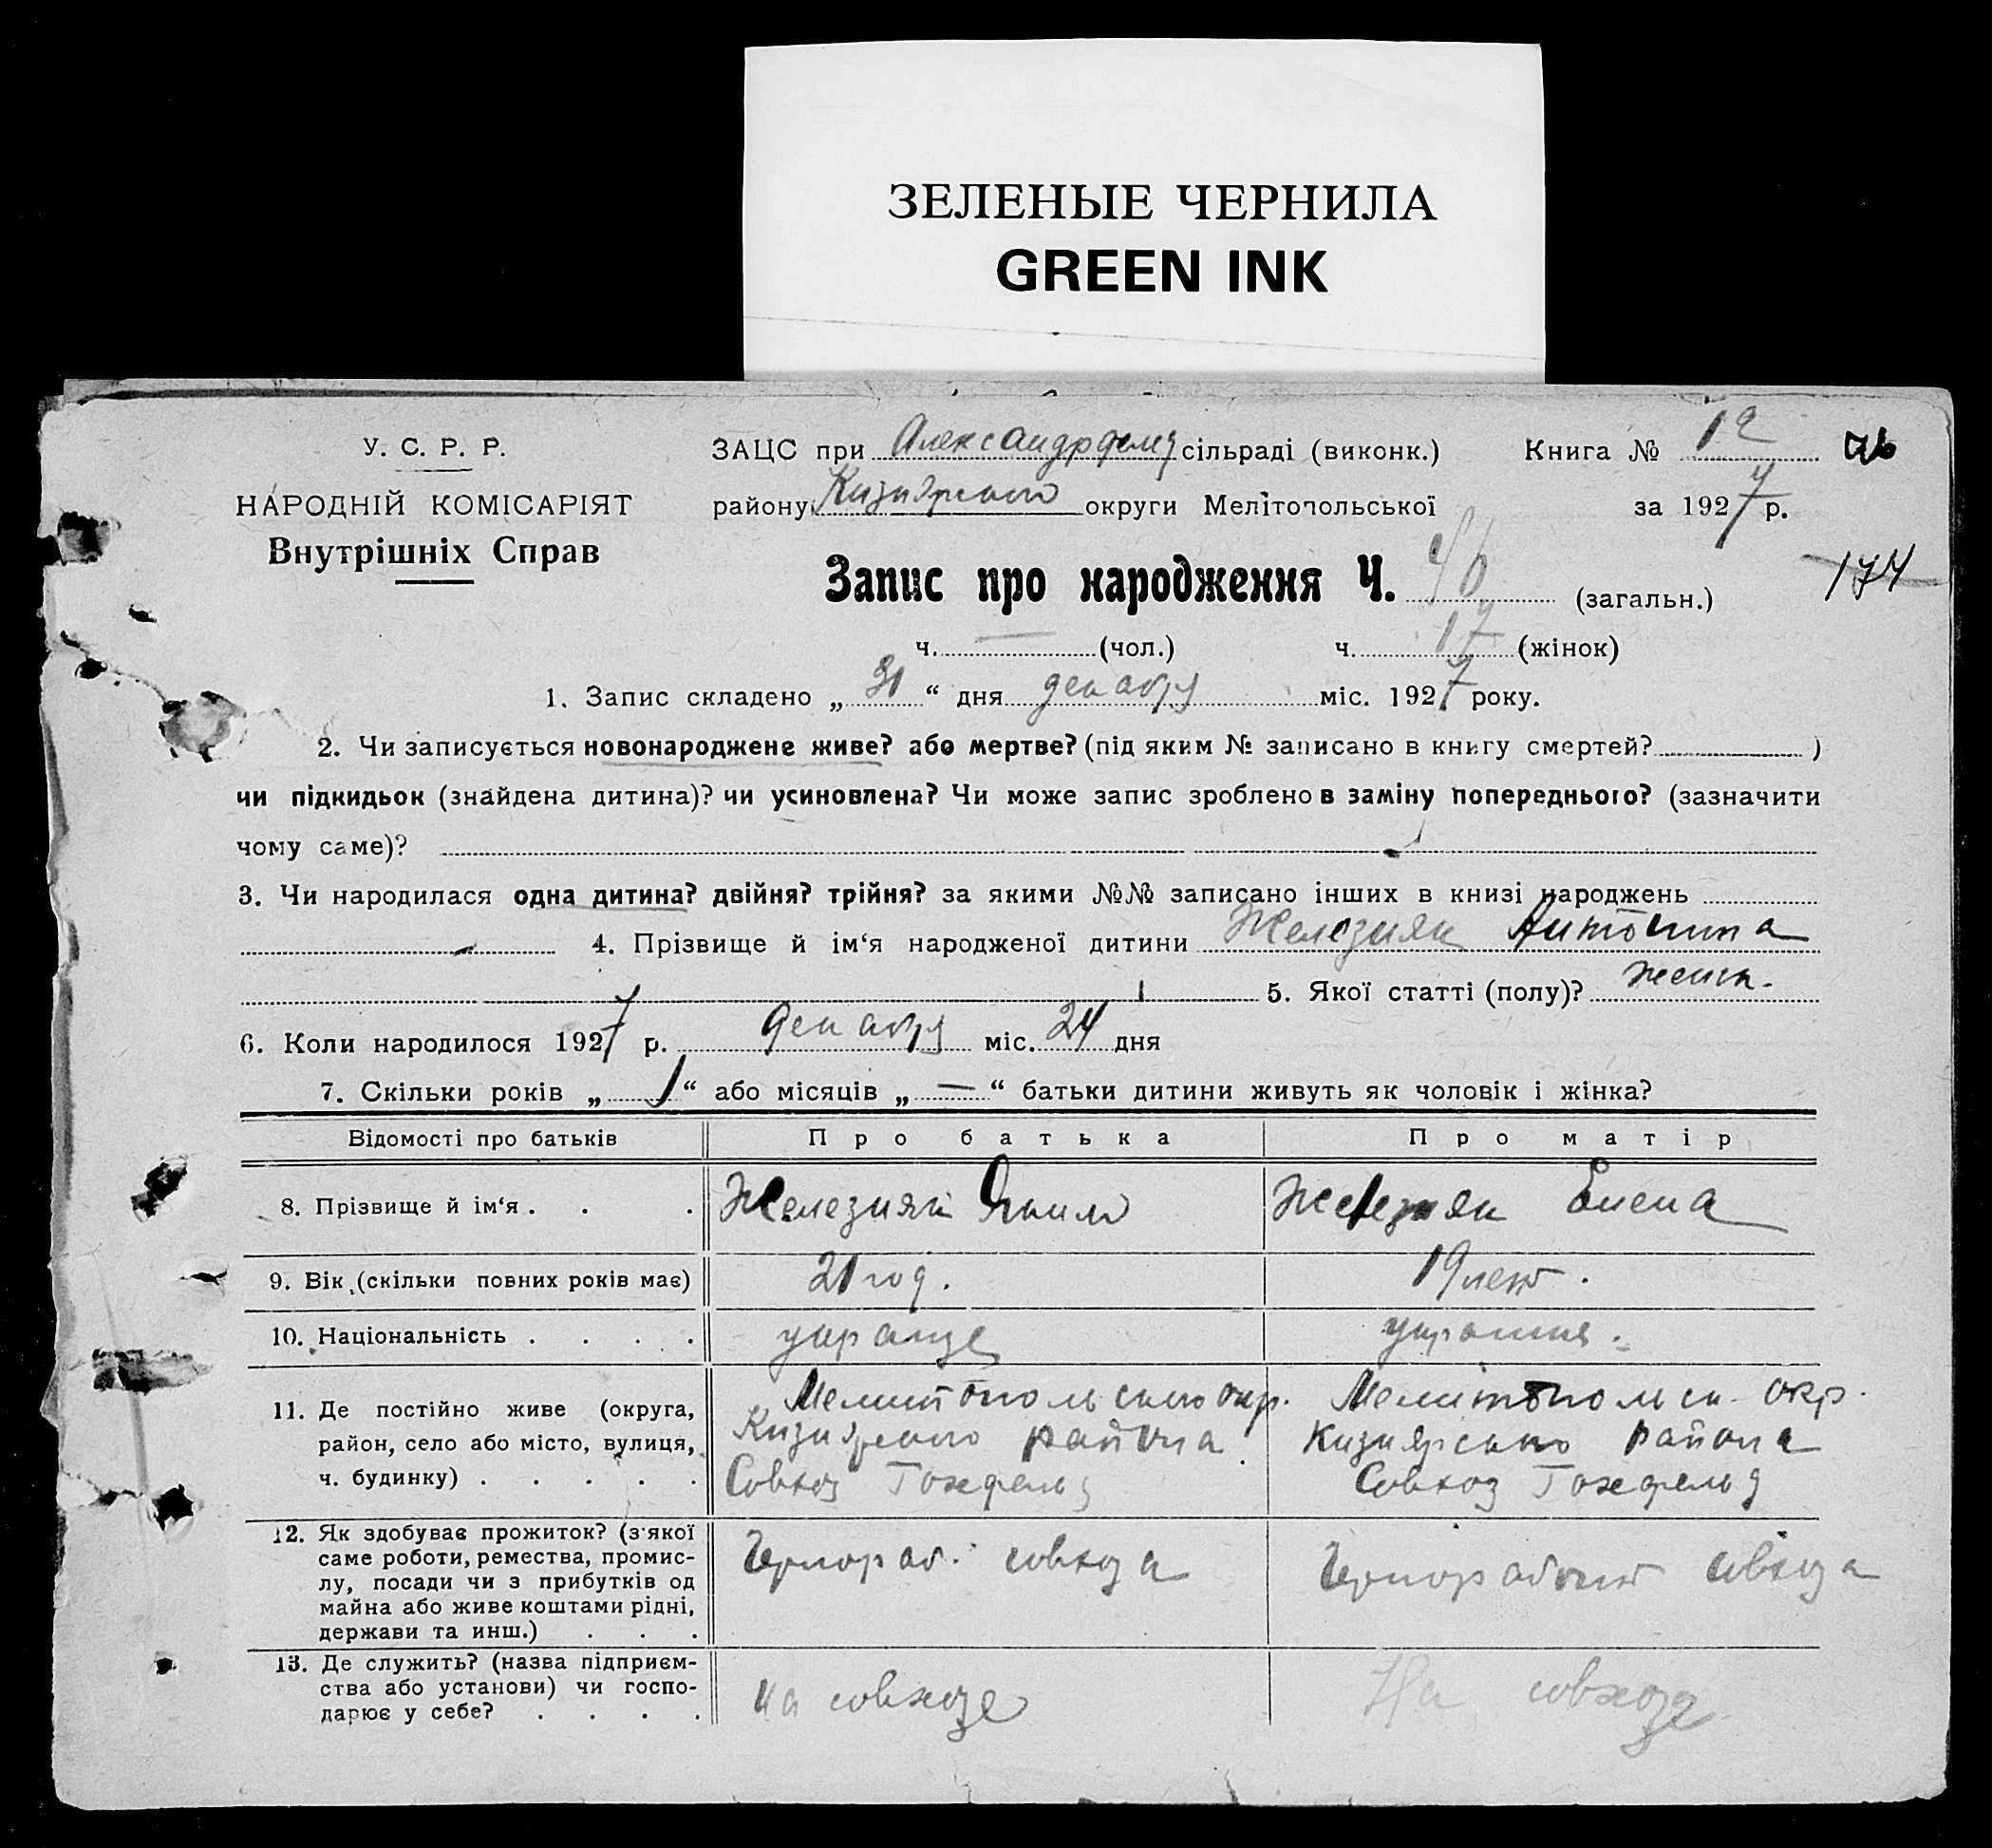 ЗЕЛЕНЫЕ ЧЕРНИЛА
GREEN INK
У. С. Р. Р.
НАРОДНІЙ КОМІСАРІЯТ
Внутрішніх Справ
ЗАЦС при Александрфельд сільраді (виконк.)
району Кизиярського округи Мелітопольської
Книга № 12
за 1927 р.
174
Запис про народження Ч. 46 (загальн.)
ч. — (чол.) ч. 17 (жінок)
1. Запис складено „ 31 “ дня декабря міс. 1927 року.
2. Чи записується новонароджене живе? або мертве? (під яким № записано в книгу смертей? )
чи підкидьок (знайдена дитина)? чи усиновлена? Чи може запис зроблено в заміну попереднього? (зазначити
чому саме)?
3. Чи народилася одна дитина? двійня? трійня? за якими №№ записано інших в книзі народжень
4. Прізвище й ім‘я народженої дитини Железняк Антонина
5. Якої статті (полу)? женск.
6. Коли народилося 1927 р. декабря міс. 24 дня
7. Скільки років „ 1 “ або місяців „ — “ батьки дитини живуть як чоловік і жінка?
Відомості про батьків Про батька Про матір
8. Прізвище й ім‘я . . . Железняк Яким Железняк Елена
9. Вік (скільки повних років має) 21 год. 19 лет.
10. Національність . . . . украине украинк.
11. Де постійно живе (округа, Мелитопольского окр. Мелитопольск. окр.
район, село або місто, вулиця, Кизиярского района Кизиярского района
ч. будинку) . . . . . Совхоз Тохфельд Совхоз Тохфельд
12. Як здобуває прожиток? (з'якої
саме роботи, ремества, промис- Чернораб. совхоза Чернорабочий совхоза
лу, посади чи з прибутків од
майна або живе коштами рідні,
держави та инш.) . . .
13. Де служить? (назва підприєм-
ства або установи) чи госпо- на совхозе На совхозе
дарює у себе? . . . .